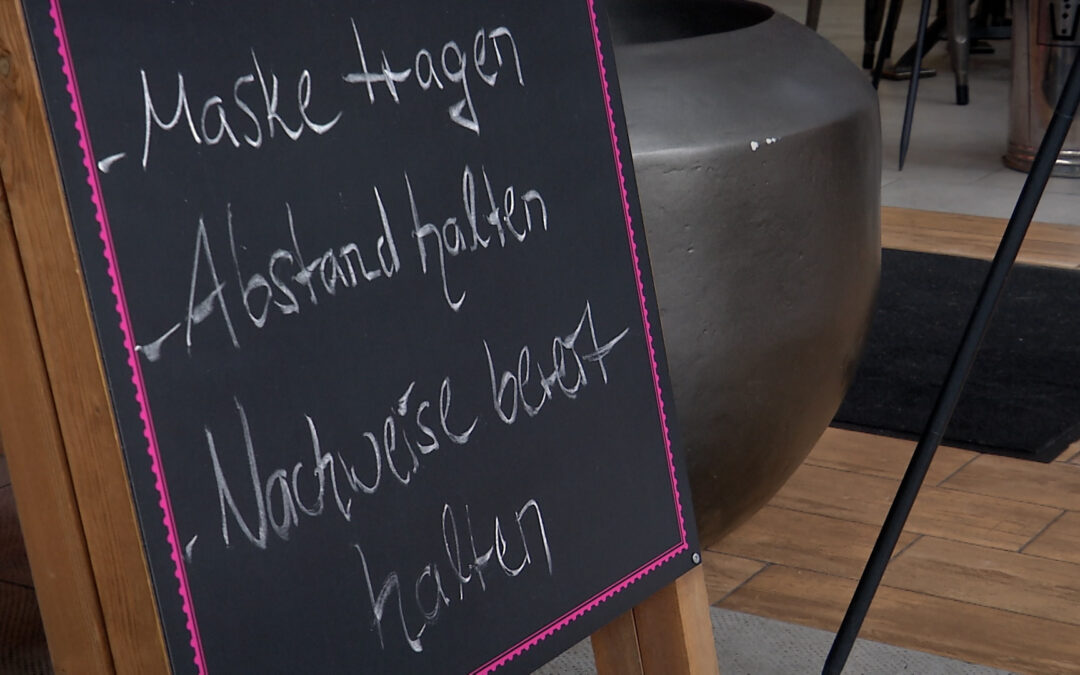 - Maske tragen
- Abstand halten
- Nachweise bereit
halten